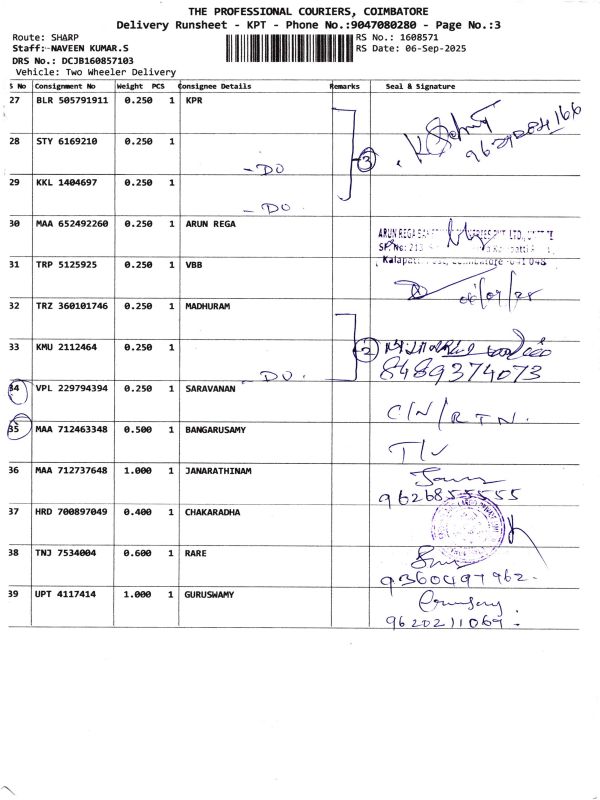 THE PROFESSIONAL COURIERS, COIMBATORE
Delivery Runsheet - KPT - Phone No.:9047080280 - Page No.:3
Route: SHARP RS No.: 1608571
Staff: NAVEEN KUMAR.S RS Date: 06-Sep-2025
DRS No.: DCJB160857103
Vehicle: Two Wheeler Delivery
S No Consignment No Weight PCS Consignee Details Remarks Seal & Signature
27 BLR 505791911 0.250 1 KPR
28 STY 6169210 0.250 1
- DO
3
29 KKL 1404697 0.250 1
- DO
30 MAA 652492260 0.250 1 ARUN REGA
ARUN REGA
SF. No: 213
Kalapatti
31 TRP 5125925 0.250 1 VBB
32 TRZ 360101746 0.250 1 MADHURAM
33 KMU 2112464 0.250 1
2
- DO
8489374073
34 VPL 229794394 0.250 1 SARAVANAN
C/N/RTN.
35 MAA 712463348 0.500 1 BANGARUSAMY
36 MAA 712737648 1.000 1 JANARATHINAM
9626855555
37 HRD 700897049 0.400 1 CHAKARADHA
38 TNJ 7534004 0.600 1 RARE
9360497962.
39 UPT 4117414 1.000 1 GURUSWAMY
9620211069.